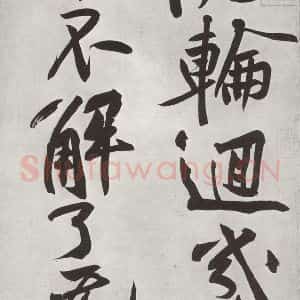 輪迴幾
不解了
Shufawang.CN